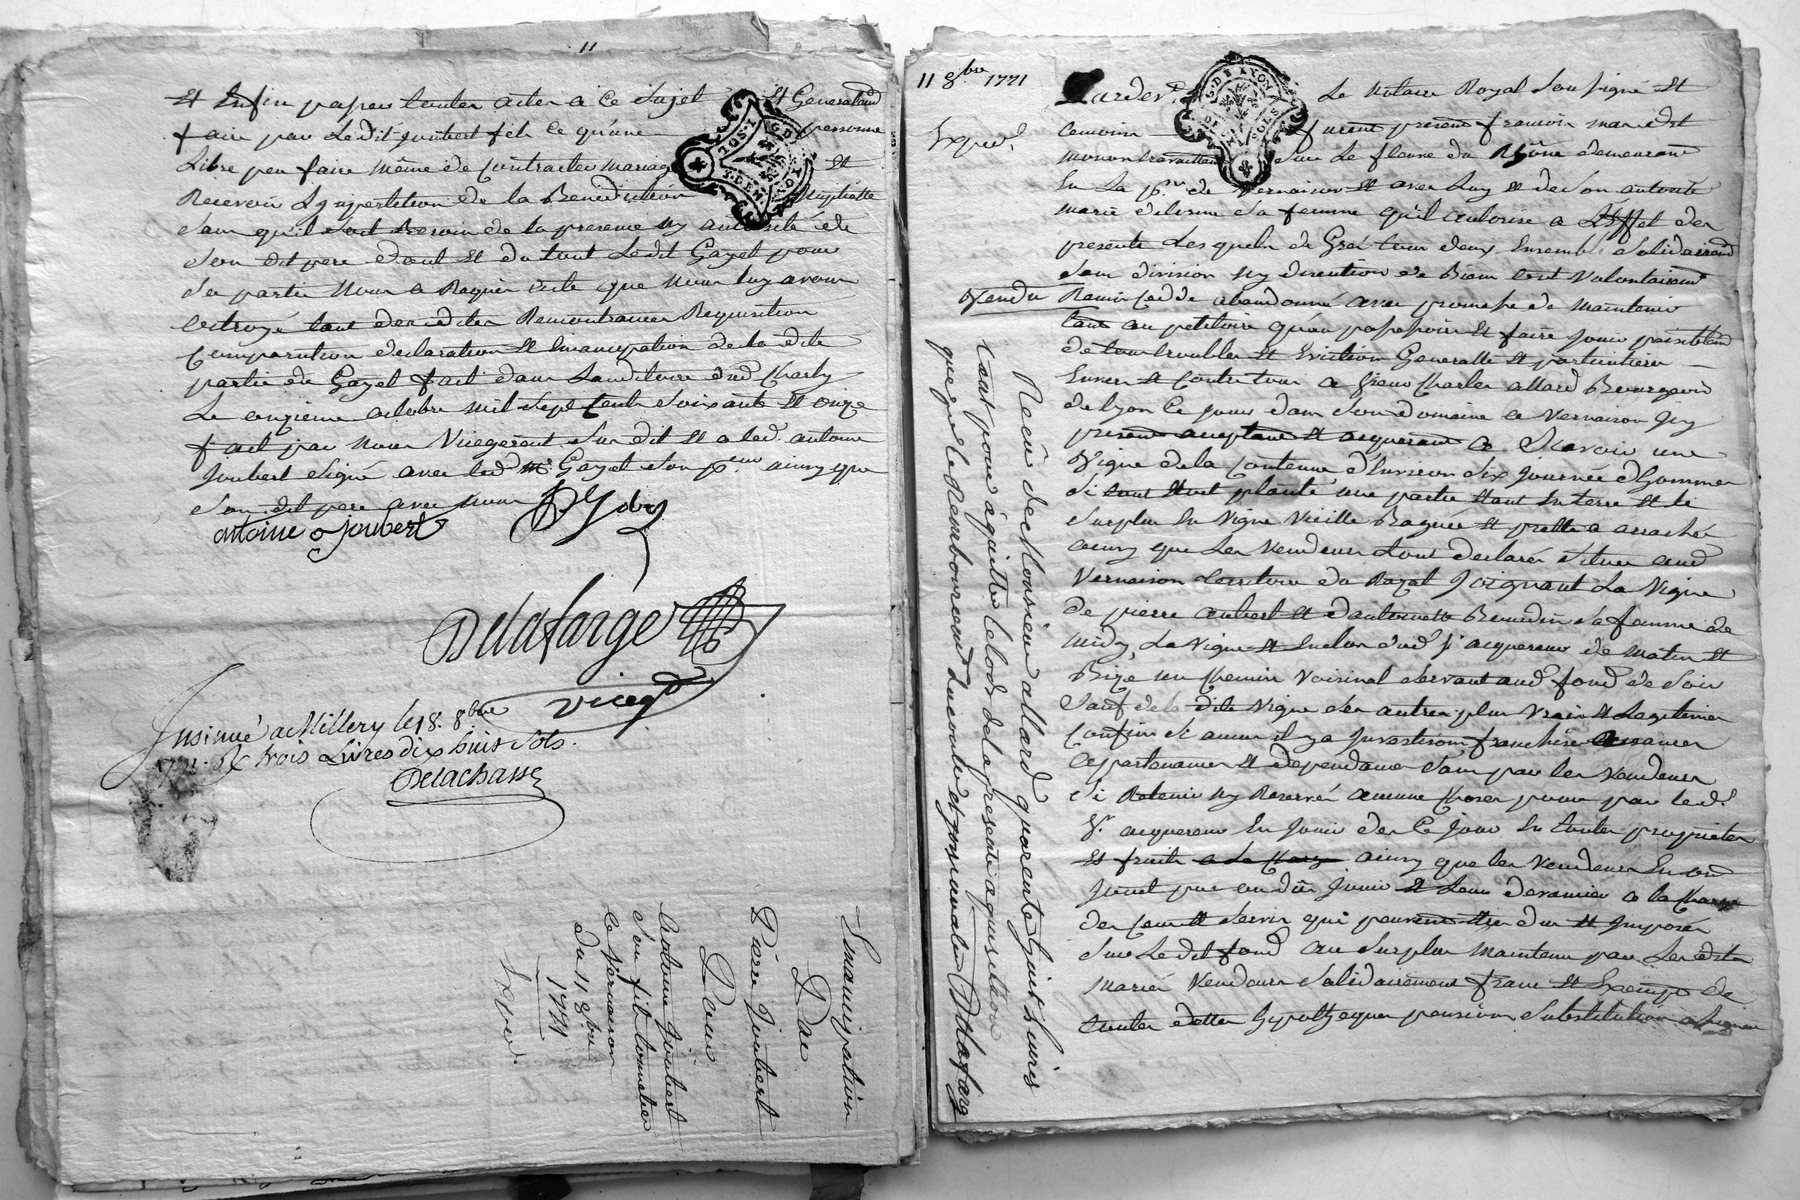 11
Et Enfin passer toutes actes a ce sujet Et Generalem
faire par Ledit joubert fils ce qu'une personne
Libre peu faire même de Contracter mariage Et
Recevoir de la Benediction Nuptialle
sans qu'il soit Besoin de la presence ny authorité de
son dit pere dont Et du tout Ledit Gayet pour
sa partie Nous a Requis acte que Nous luy avons
octroyé tant desdites Remontrances Requisition
Comparution declaration Et Emancipation de la dite
partie de Gayet fait dans Lauditoire dud Charly
Le onzieme octobre mil sept Cent soixante Et onze
fait par nous Vicegerent sus dit Et a led. antoine
Joubert signé avec led Me Gayet son pr.eur ainsy que
son dit pere avec nous
antoine Joubert
Delafarge
viceg
Insinué a Millery le 18. 8bre
1771. R trois Livres dix huit sols.
Delachasse
Emancipation
Par
Pierre Joubert
Pour
Antoine Joubert
son fils tonnelier
de Vernaison
du 11 8bre
1771
Exped.
11 8bre 1771
Exped.
Pardevt. Le Notaire Royal Soussigné Et
temoins furent presents francois
travaillant sur Le fleuve du Rhône demeurant
En La psse de Vernaison Et avec Luy Et de son autorité
marie sa femme qu'il autorise a L'Effet des
presentes Lesquels de Gré tous deux Ensemble solidairemt
sans division ny discution de Biens ont Volontairemt
Vendu Remis Cedé abandonné avec promesse de maintenir
tant au petitoire qu'au possessoire Et faire Jouir paisiblemt
de tous troubles Et Eviction Generalle Et particuliere
Envers Et Contre tous a sieur Charles allard Bourgeois
de lyon Ce jour dans son domaine a Vernaison Icy
present acceptant Et acquerant a scavoir une
Vigne de la Contenue d'Environ six Journée d'hommes
si tout Etoit planté, une partie Etant En terre Et le
surplus En Vigne Vieille Et prette a arracher
ainsy que Les Vendeurs L'ont declaré située aud
Vernaison territoire du Razat Joignant La Vigne
de pierre aubert Et d'antoinette sa femme de
midy, La Vigne Et Enclos dud sr acquereur de matin Et
Bize un Chemin Voisinal servant aud fond de soir
sauf de la dite Vigne ses autres plus Vrais Et Legitimes
Confins si aucun il y a franchises aisances
appartenances Et dependances sans par les Vendeurs
s'i Retenir ny Reserver aucune Choses pour par led.
sr. acquereur En Jouir des Ce Jour En toutes proprietés
Et fruits a La Charge ainsy que les Vendeurs En ont
Jouit pu ou dû Jouir Et Leurs devanciers a la Charge
des Cens Et servis qui peuvent Etre dus Et Imposés
sur Ledit fond au surplus maintenu par Lesdits
mariés Vendeurs solidairement franc Et Exempt de
toutes dettes hypotheques pensions substitutions
Receu de Monsieur allard quarente huit Livres
tant pour aquitter le lods de la presente aquisition
que pour le Remboursement du controlle et Delafarge